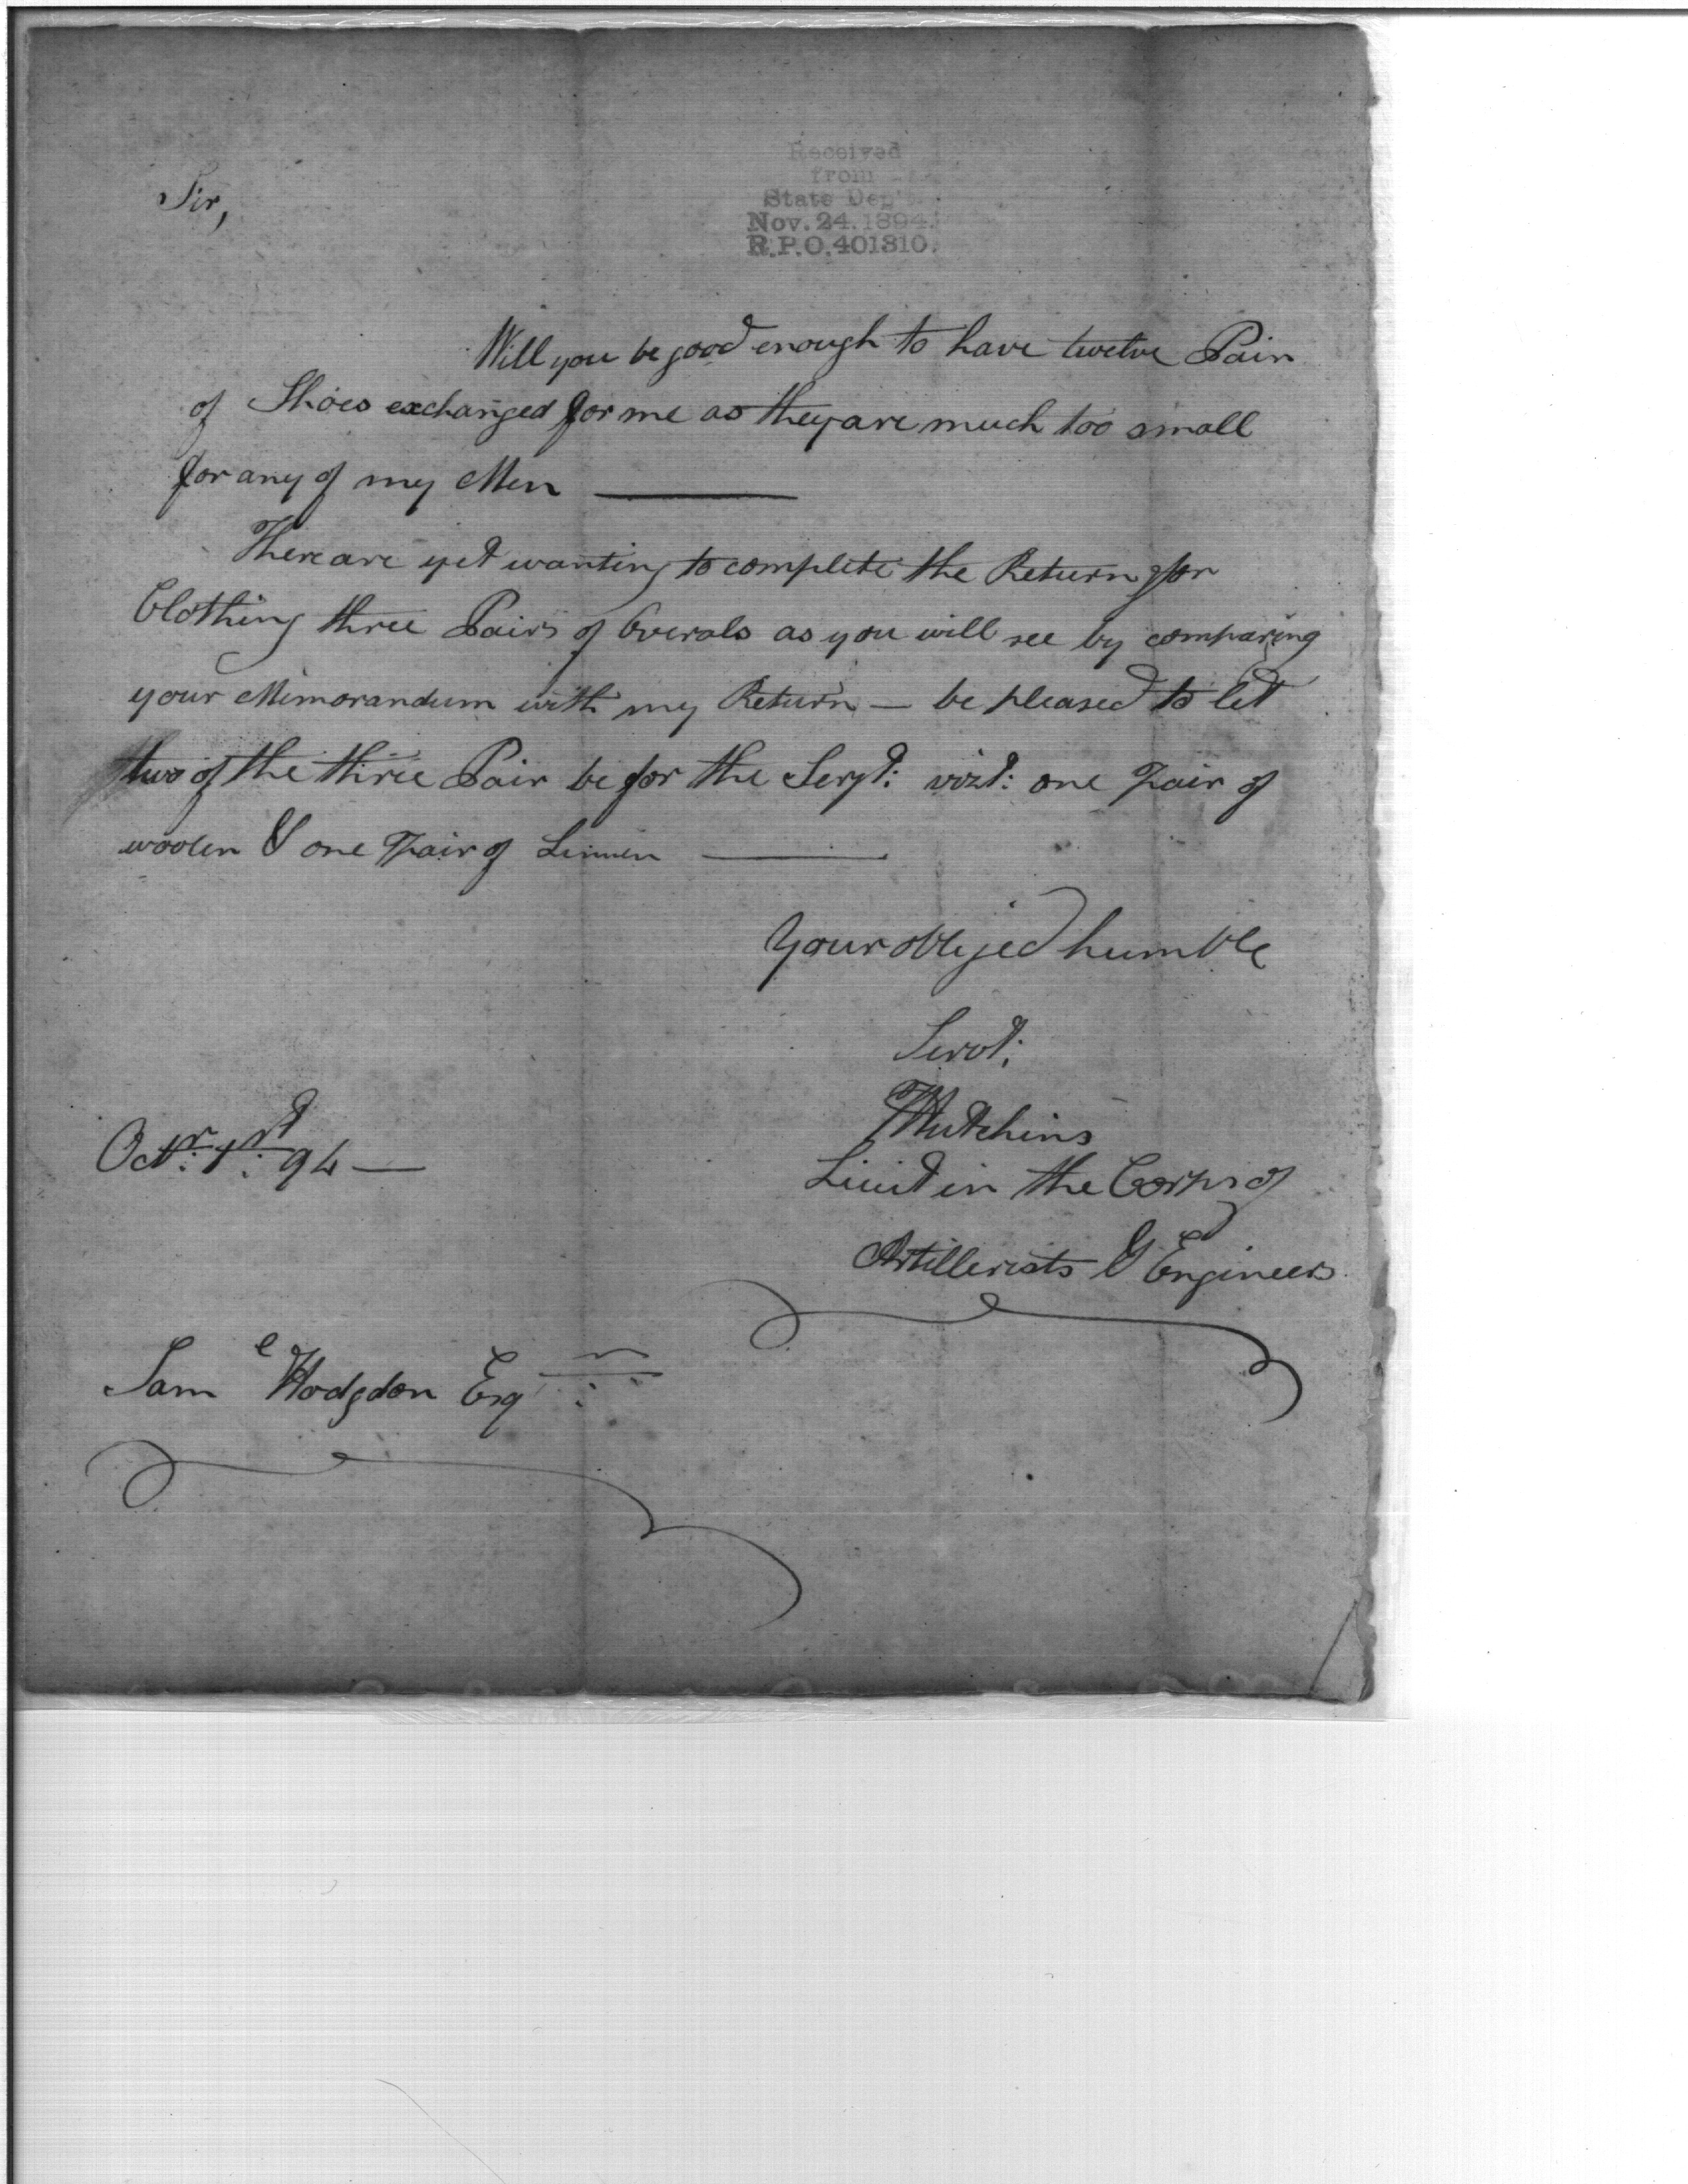 Received
from
State Dep
Nov. 24. 1894.
R.P.O. 401310.
Sir,
Will you be good enough to have twelve Pair
of Shoes exchanged for me as they are much too small
for any of my Men ———
There are yet wanting to complete the Return for
Clothing three Pairs of Overals as you will see by comparing
your Memorandum with my Return — be pleased to let
two of the three Pair be for the Sergt: vizt: one pair of
woolen & one pair of Linnen ———
Your obliged humble
Servt:
Hutchins
Lieut in the Corps of
Artillerists & Engineers
Octr: 1st: 94 —
Saml Hodgdon Esqr: